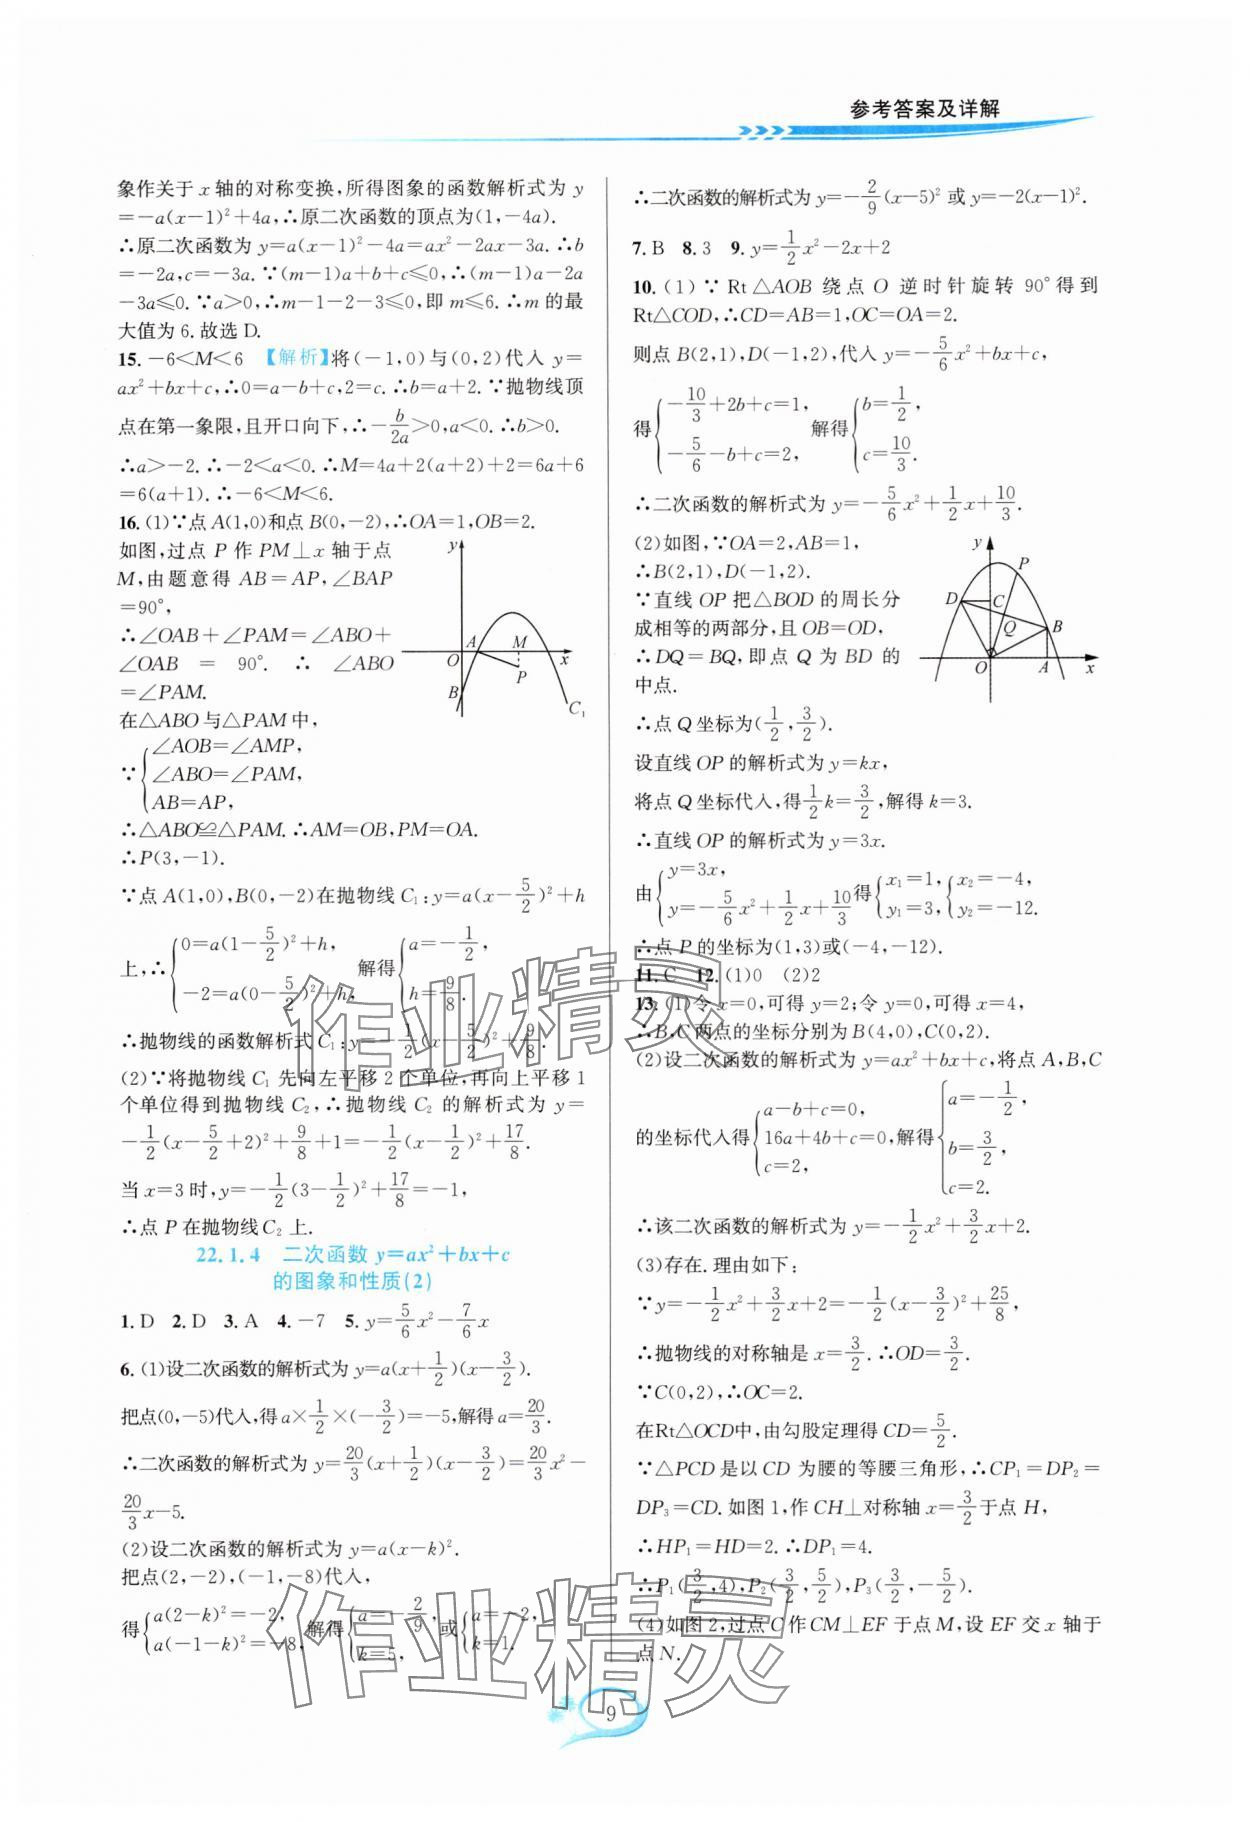 参考答案及详解
象作关于 x 轴的对称变换,所得图象的函数解析式为 y
=-a(x-1)²+4a,∴原二次函数的顶点为(1,-4a).
∴原二次函数为 y=a(x-1)²-4a=ax²-2ax-3a. ∴b
=-2a,c=-3a. ∵(m-1)a+b+c≤0,∴(m-1)a-2a
-3a≤0. ∵a>0,∴m-1-2-3≤0,即 m≤6. ∴m 的最
大值为 6. 故选 D.
15. -6<M<6 【解析】将(-1,0)与(0,2)代入 y=
ax²+bx+c,∴0=a-b+c,2=c. ∴b=a+2. ∵抛物线顶
点在第一象限,且开口向下,∴-b/2a>0,a<0. ∴b>0.
∴a>-2. ∴-2<a<0. ∴M=4a+2(a+2)+2=6a+6
=6(a+1). ∴-6<M<6.
16. (1)∵点 A(1,0)和点 B(0,-2),∴OA=1,OB=2.
如图,过点 P 作 PM⊥x 轴于点
M,由题意得 AB=AP,∠BAP
=90°,
∴∠OAB+∠PAM=∠ABO+
∠OAB = 90°. ∴ ∠ABO
=∠PAM.
在△ABO与△PAM中,
∵{∠AOB=∠AMP,
∠ABO=∠PAM,
AB=AP,
y
A M
O x
P
B
C₁
∴△ABO≌△PAM. ∴AM=OB,PM=OA.
∴P(3,-1).
∵点 A(1,0),B(0,-2)在抛物线 C₁:y=a(x-5/2)²+h
上,∴{0=a(1-5/2)²+h, -2=a(0-5/2)²+h, 解得{a=-1/2, h=9/8.
∴抛物线的函数解析式 C₁:y=-1/2(x-5/2)²+9/8.
(2)∵将抛物线 C₁ 先向左平移 2 个单位,再向上平移 1
个单位得到抛物线 C₂,∴抛物线 C₂ 的解析式为 y=
-1/2(x-5/2+2)²+9/8+1=-1/2(x-1/2)²+17/8.
当 x=3 时,y=-1/2(3-1/2)²+17/8=-1,
∴点 P 在抛物线C₂ 上.
22.1.4 二次函数 y=ax²+bx+c
的图象和性质(2)
1. D 2. D 3. A 4. -7 5. y=5/6x²-7/6x
6. (1)设二次函数的解析式为 y=a(x+1/2)(x-3/2).
把点(0,-5)代入,得 a×1/2×(-3/2)=-5,解得 a=20/3.
∴二次函数的解析式为 y=20/3(x+1/2)(x-3/2)=20/3x²-
20/3x-5.
(2)设二次函数的解析式为 y=a(x-k)².
把点(2,-2),(-1,-8)代入,
得{a(2-k)²=-2, a(-1-k)²=-8, 解得{a=-2/9, k=5, 或{a=-2, k=1.
∴二次函数的解析式为 y=-2/9(x-5)² 或 y=-2(x-1)².
7. B 8. 3 9. y=1/2x²-2x+2
10. (1) ∵ Rt△AOB 绕点 O 逆时针旋转 90°得到
Rt△COD,∴CD=AB=1,OC=OA=2.
则点 B(2,1),D(-1,2),代入 y=-5/6x²+bx+c,
得{-10/3+2b+c=1, -5/6-b+c=2, 解得{b=1/2, c=10/3.
∴二次函数的解析式为 y=-5/6x²+1/2x+10/3.
(2)如图,∵OA=2,AB=1,
∴B(2,1),D(-1,2).
∵直线 OP 把△BOD 的周长分
成相等的两部分,且 OB=OD,
∴DQ=BQ,即点 Q 为 BD 的
中点.
y
P
D C
Q
B
O A x
∴点 Q 坐标为(1/2,3/2).
设直线 OP 的解析式为 y=kx,
将点 Q 坐标代入,得1/2k=3/2,解得 k=3.
∴直线 OP 的解析式为 y=3x.
由{y=3x, y=-5/6x²+1/2x+10/3 得{x₁=1, y₁=3, {x₂=-4, y₂=-12.
∴点 P 的坐标为(1,3)或(-4,-12).
11. C 12. (1)0 (2)2
13. (1)令 x=0,可得 y=2;令 y=0,可得 x=4,
∴B,C 两点的坐标分别为 B(4,0),C(0,2).
(2)设二次函数的解析式为 y=ax²+bx+c,将点 A,B,C
的坐标代入得{a-b+c=0, 16a+4b+c=0, c=2, 解得{a=-1/2, b=3/2, c=2.
∴该二次函数的解析式为 y=-1/2x²+3/2x+2.
(3)存在. 理由如下:
∵y=-1/2x²+3/2x+2=-1/2(x-3/2)²+25/8,
∴抛物线的对称轴是 x=3/2. ∴OD=3/2.
∵C(0,2),∴OC=2.
在Rt△OCD中,由勾股定理得 CD=5/2.
∵△PCD 是以 CD 为腰的等腰三角形,∴CP₁=DP₂=
DP₃=CD. 如图 1,作 CH⊥对称轴 x=3/2于点 H,
∴HP₁=HD=2. ∴DP₁=4.
∴P₁(3/2,4),P₂(3/2,5/2),P₃(3/2,-5/2).
(4)如图 2,过点 C 作 CM⊥EF 于点 M,设 EF 交 x 轴于
点 N.
作业精灵
作业精灵
9